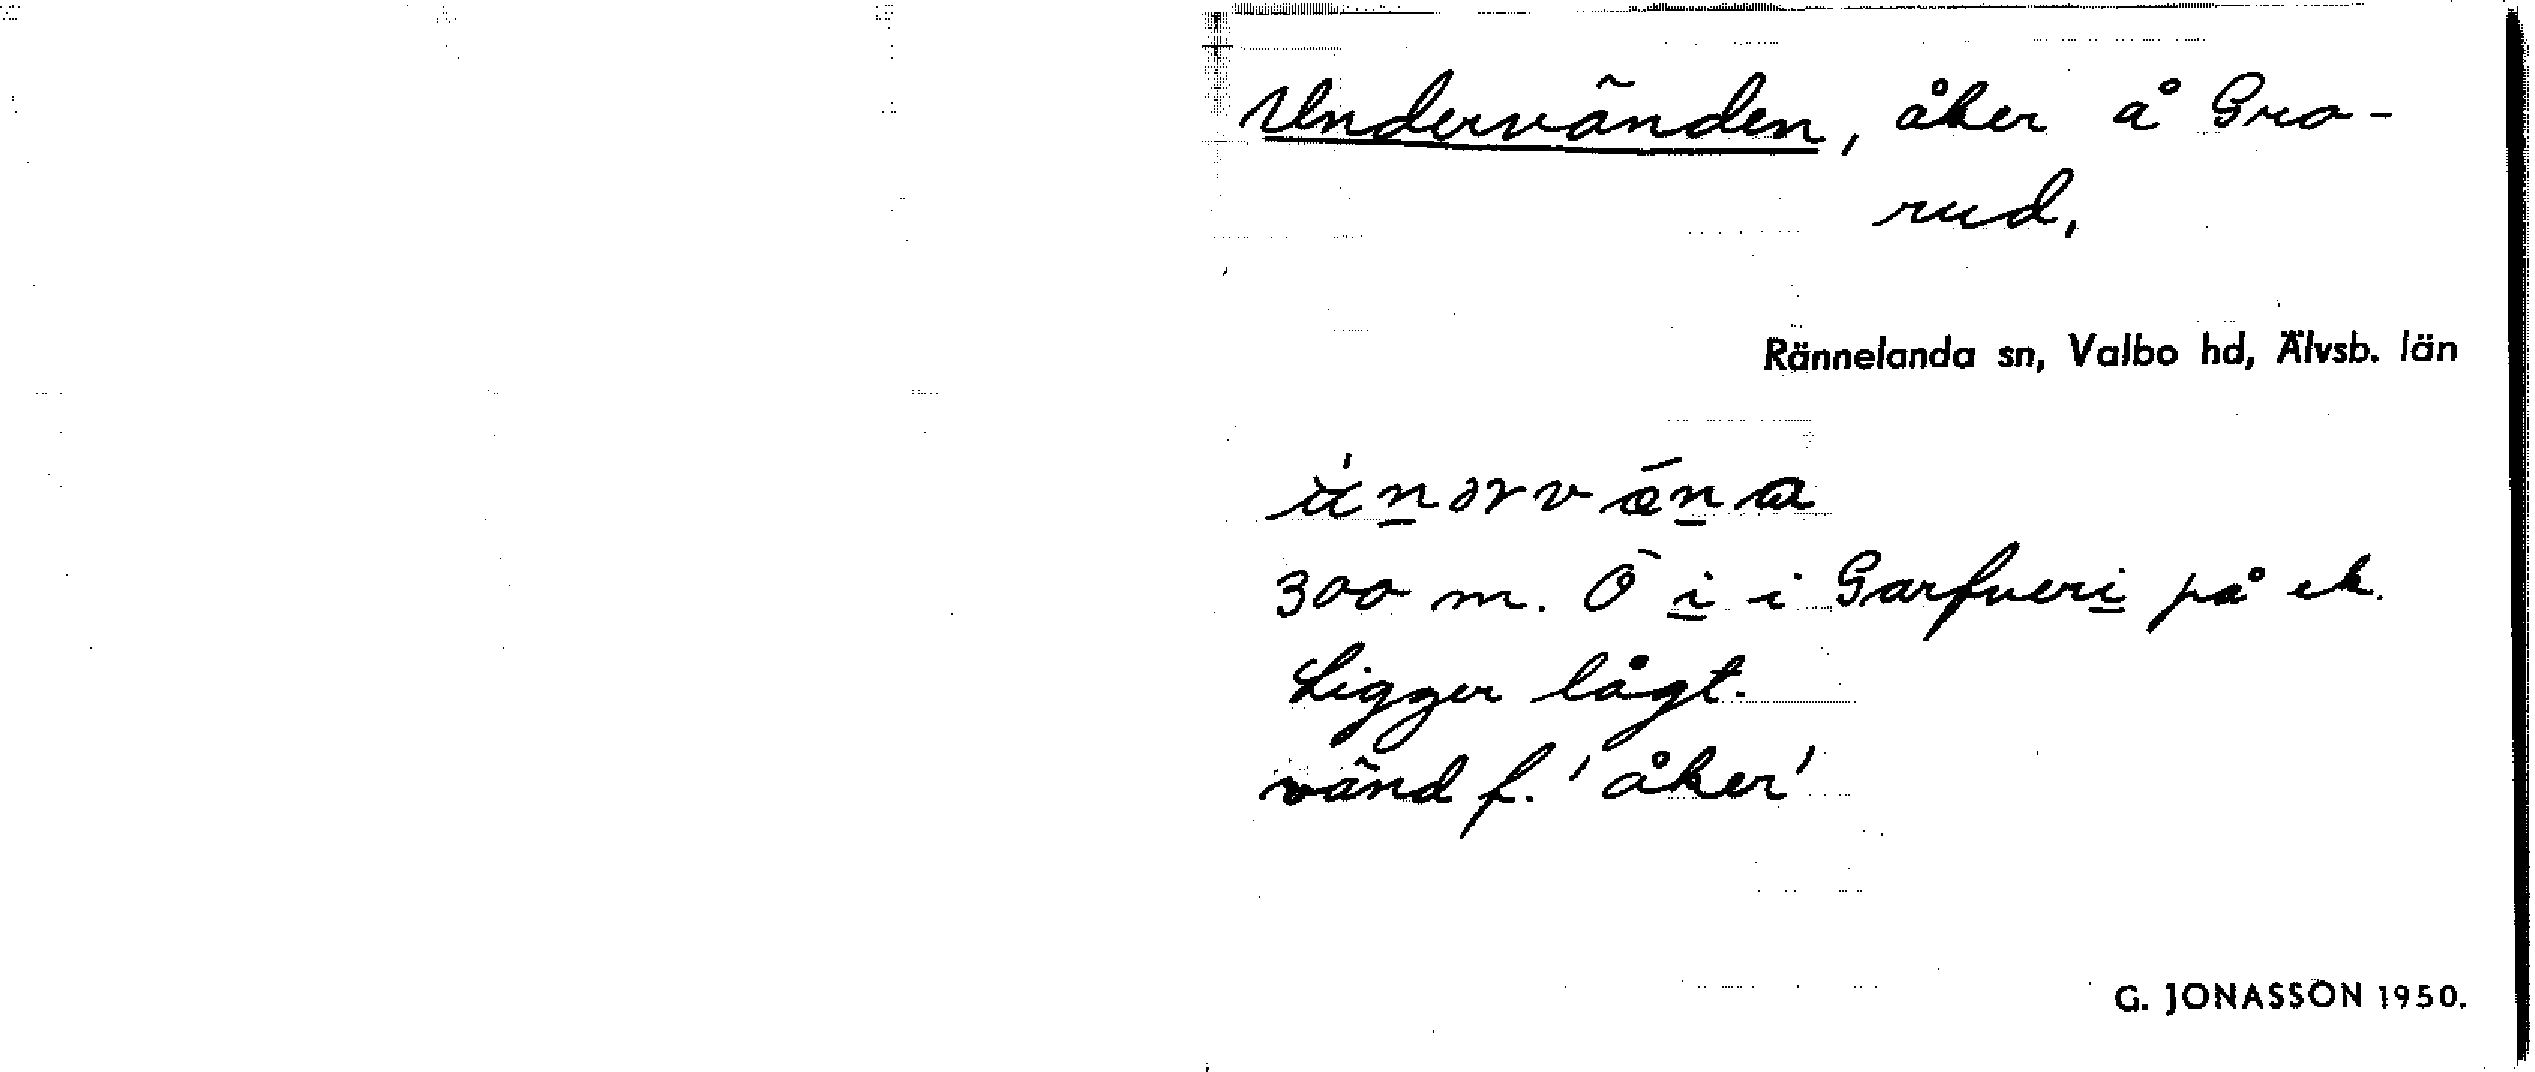 Undervänden, åker å Gro-
rud,
Rännelanda sn, Valbo hd, Älvsb. län
300 m. Ö i i Garfveri på ek.
Ligger lågt.
vänd f. 'åker'
G. JONASSON 1950.